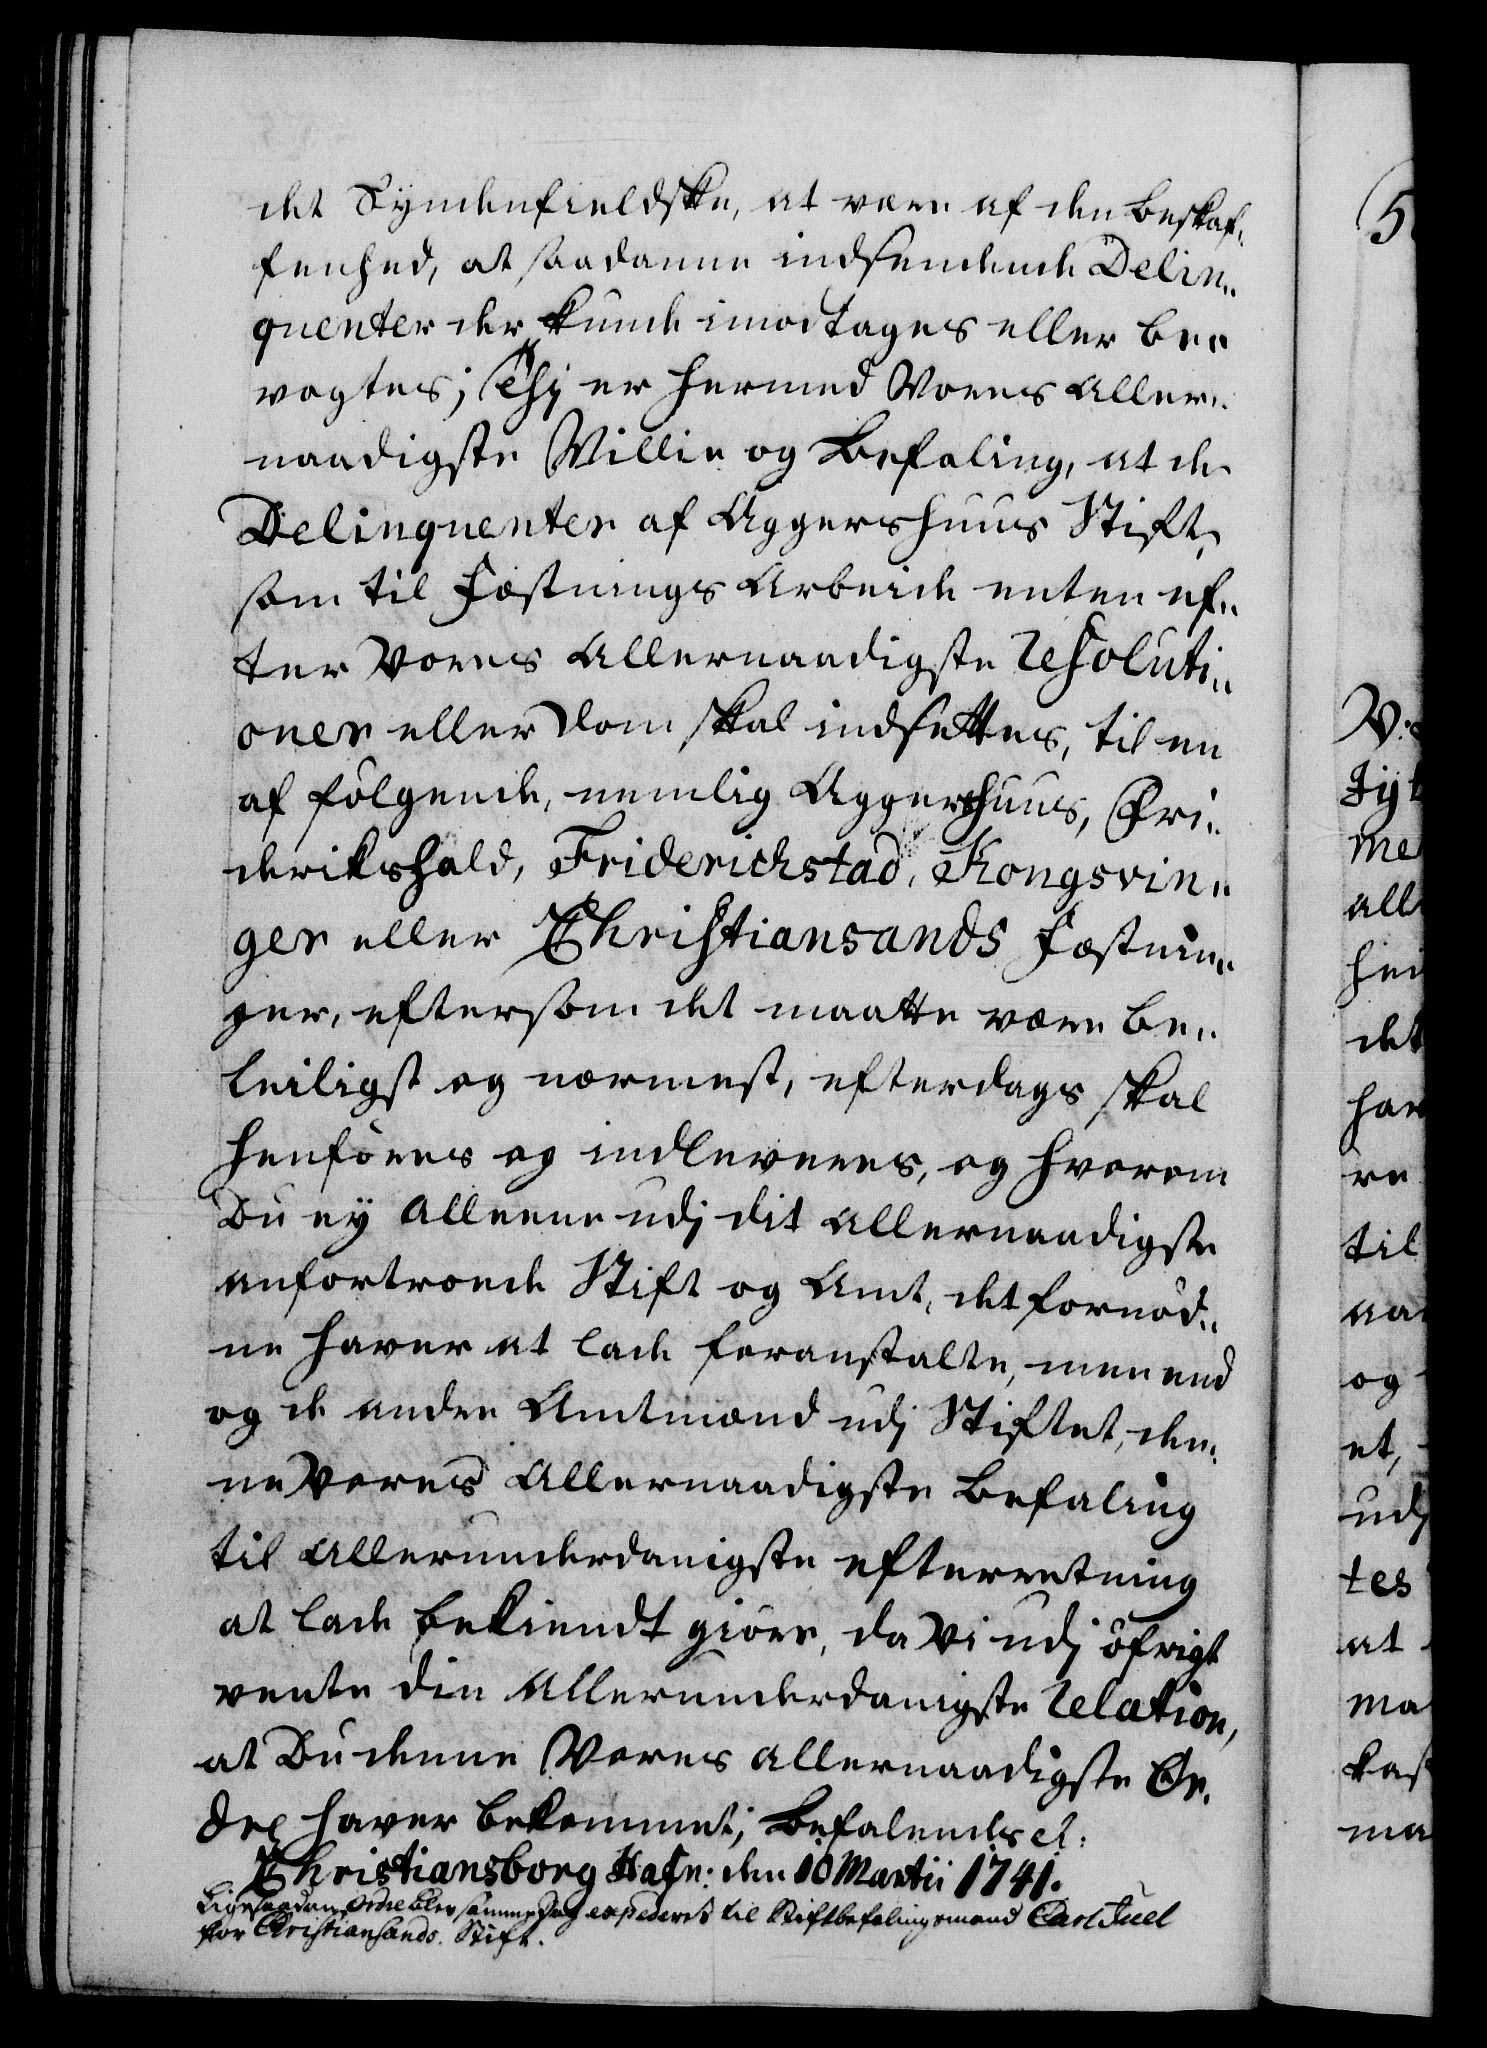 det Syndenfieldske, at være af den beskaf„
fenhed, at saadanne indsendende Delin„
quenter der kunde imodtages eller be„
vogtes; Thj er hermed Vores Aller„
naadigste Villie og Befaling, at de
Delinquenter af Aggershuus Stift,
som til Fæstnings Arbeide enten ef„
ter Vores Allernaadigste Resoluti„
oner eller Dom skal indsettes, til en
af følgende, nemlig Aggershuus, Fri„
derikshald, Friderichstad, Kongsvin„
ger eller Christiansands Fæstnin„
ger, eftersom det maatte være be„
leiligst og nærmest, efterdags skal
henføres og indleveres, og hvorom
Du ey alleene udj dit allernaadigste
anfortroede Stift og Amt, det fornød„
ne haver at lade foranstalte, men end
og de andre Amtmænd udj Stiftet, den„
ne Vores Allernaadigste Befaling
til Allerunderdanigste efterretning
at lade bekiendt giøre, da Vi udj øfrigt
vente din Allerunderdanigste Relation,
at Du denne Vores allernaadigste Or„
dre haver bekommet; Befalendes etc:
Christiansborg Hafn: den 10 Martii 1741.
Ligesaadan Ordre blev samme Dag expederet til Stiftbefalingsmand Carl Juel
for Christiansands Stift.
5
V:
Fyt
me
all
hei
det
har
re
til
aa
og
et,
udj
tes
at
ma
kas
ma